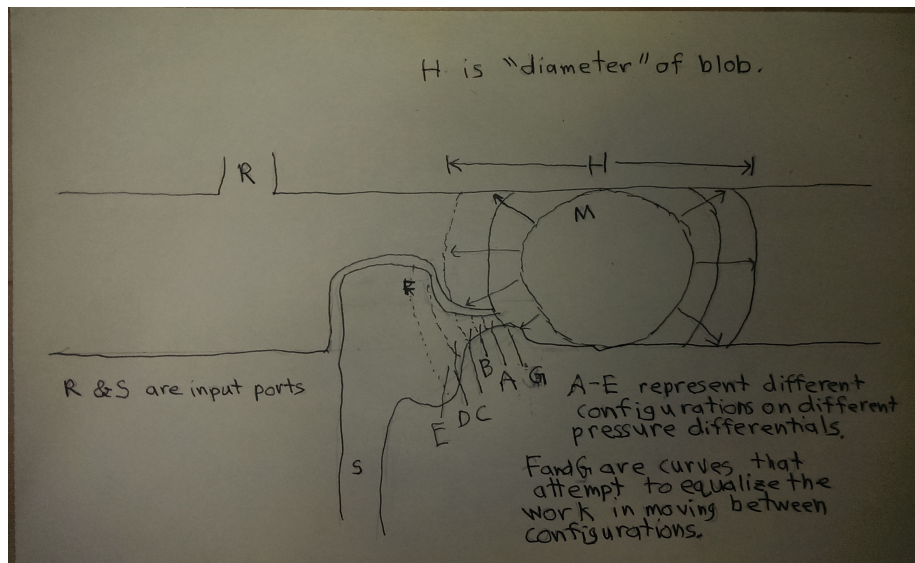 H is "diameter" of blob.
R
H
M
F
R & S are input ports
B
A
G
D
C
E
S
A-E represent different
configurations on different
pressure differentials.
F and G are curves that
attempt to equalize the
work in moving between
configurations.